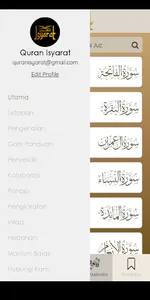 Isyarat
Quran Isyarat
quranisyarat@gmail.com
Edit Profile
Utama
Tetapan
Pengenalan
Garis Panduan
Penyelidik
Kolaborasi
Penaja
Pengiktirafan
Infaq
Hebahan
Maklum Balas
Hubungi Kami
Juz
سورة الفاتحة
سورة البقرة
سورة آل عمران
سورة النساء
سورة المائدة
سورة الأنعام